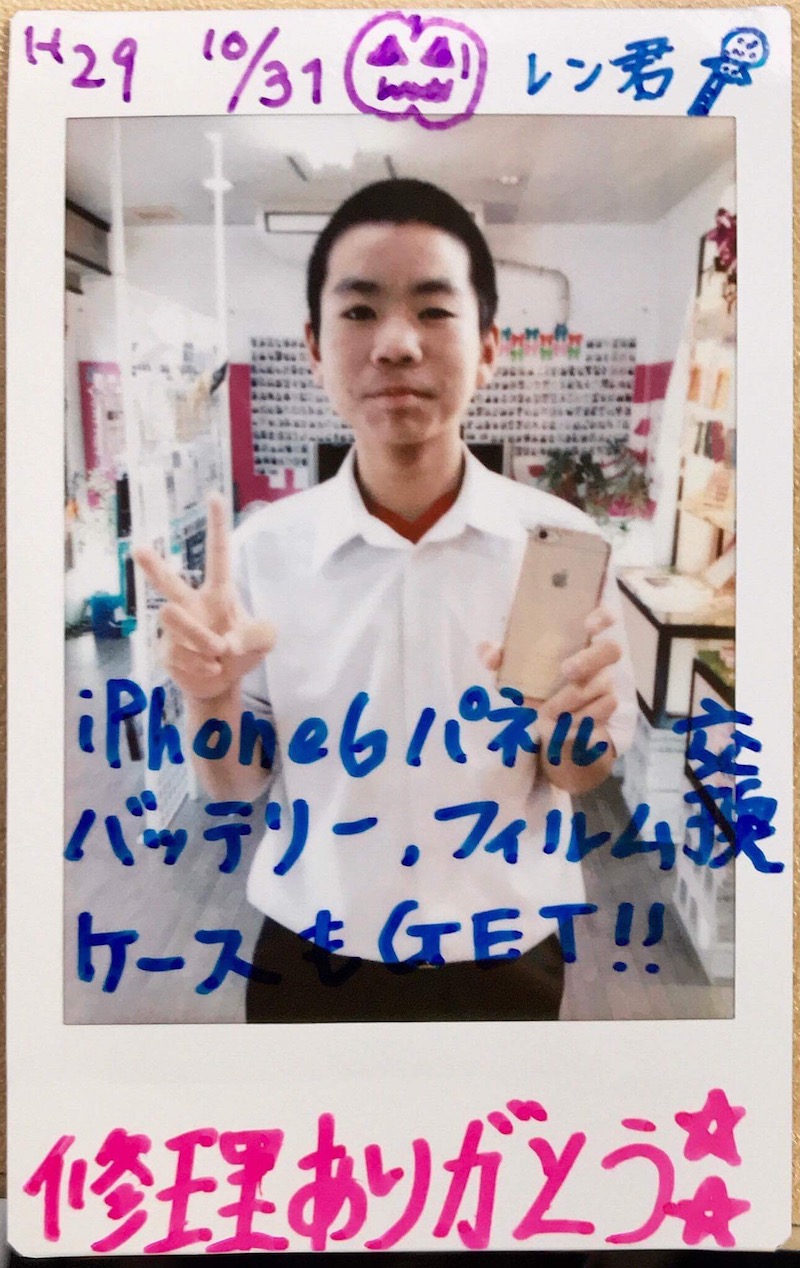 H29 10/31 レン君
iPhone6パネル 交換
バッテリー,フィルム
ケースもGET!!
修理ありがとう